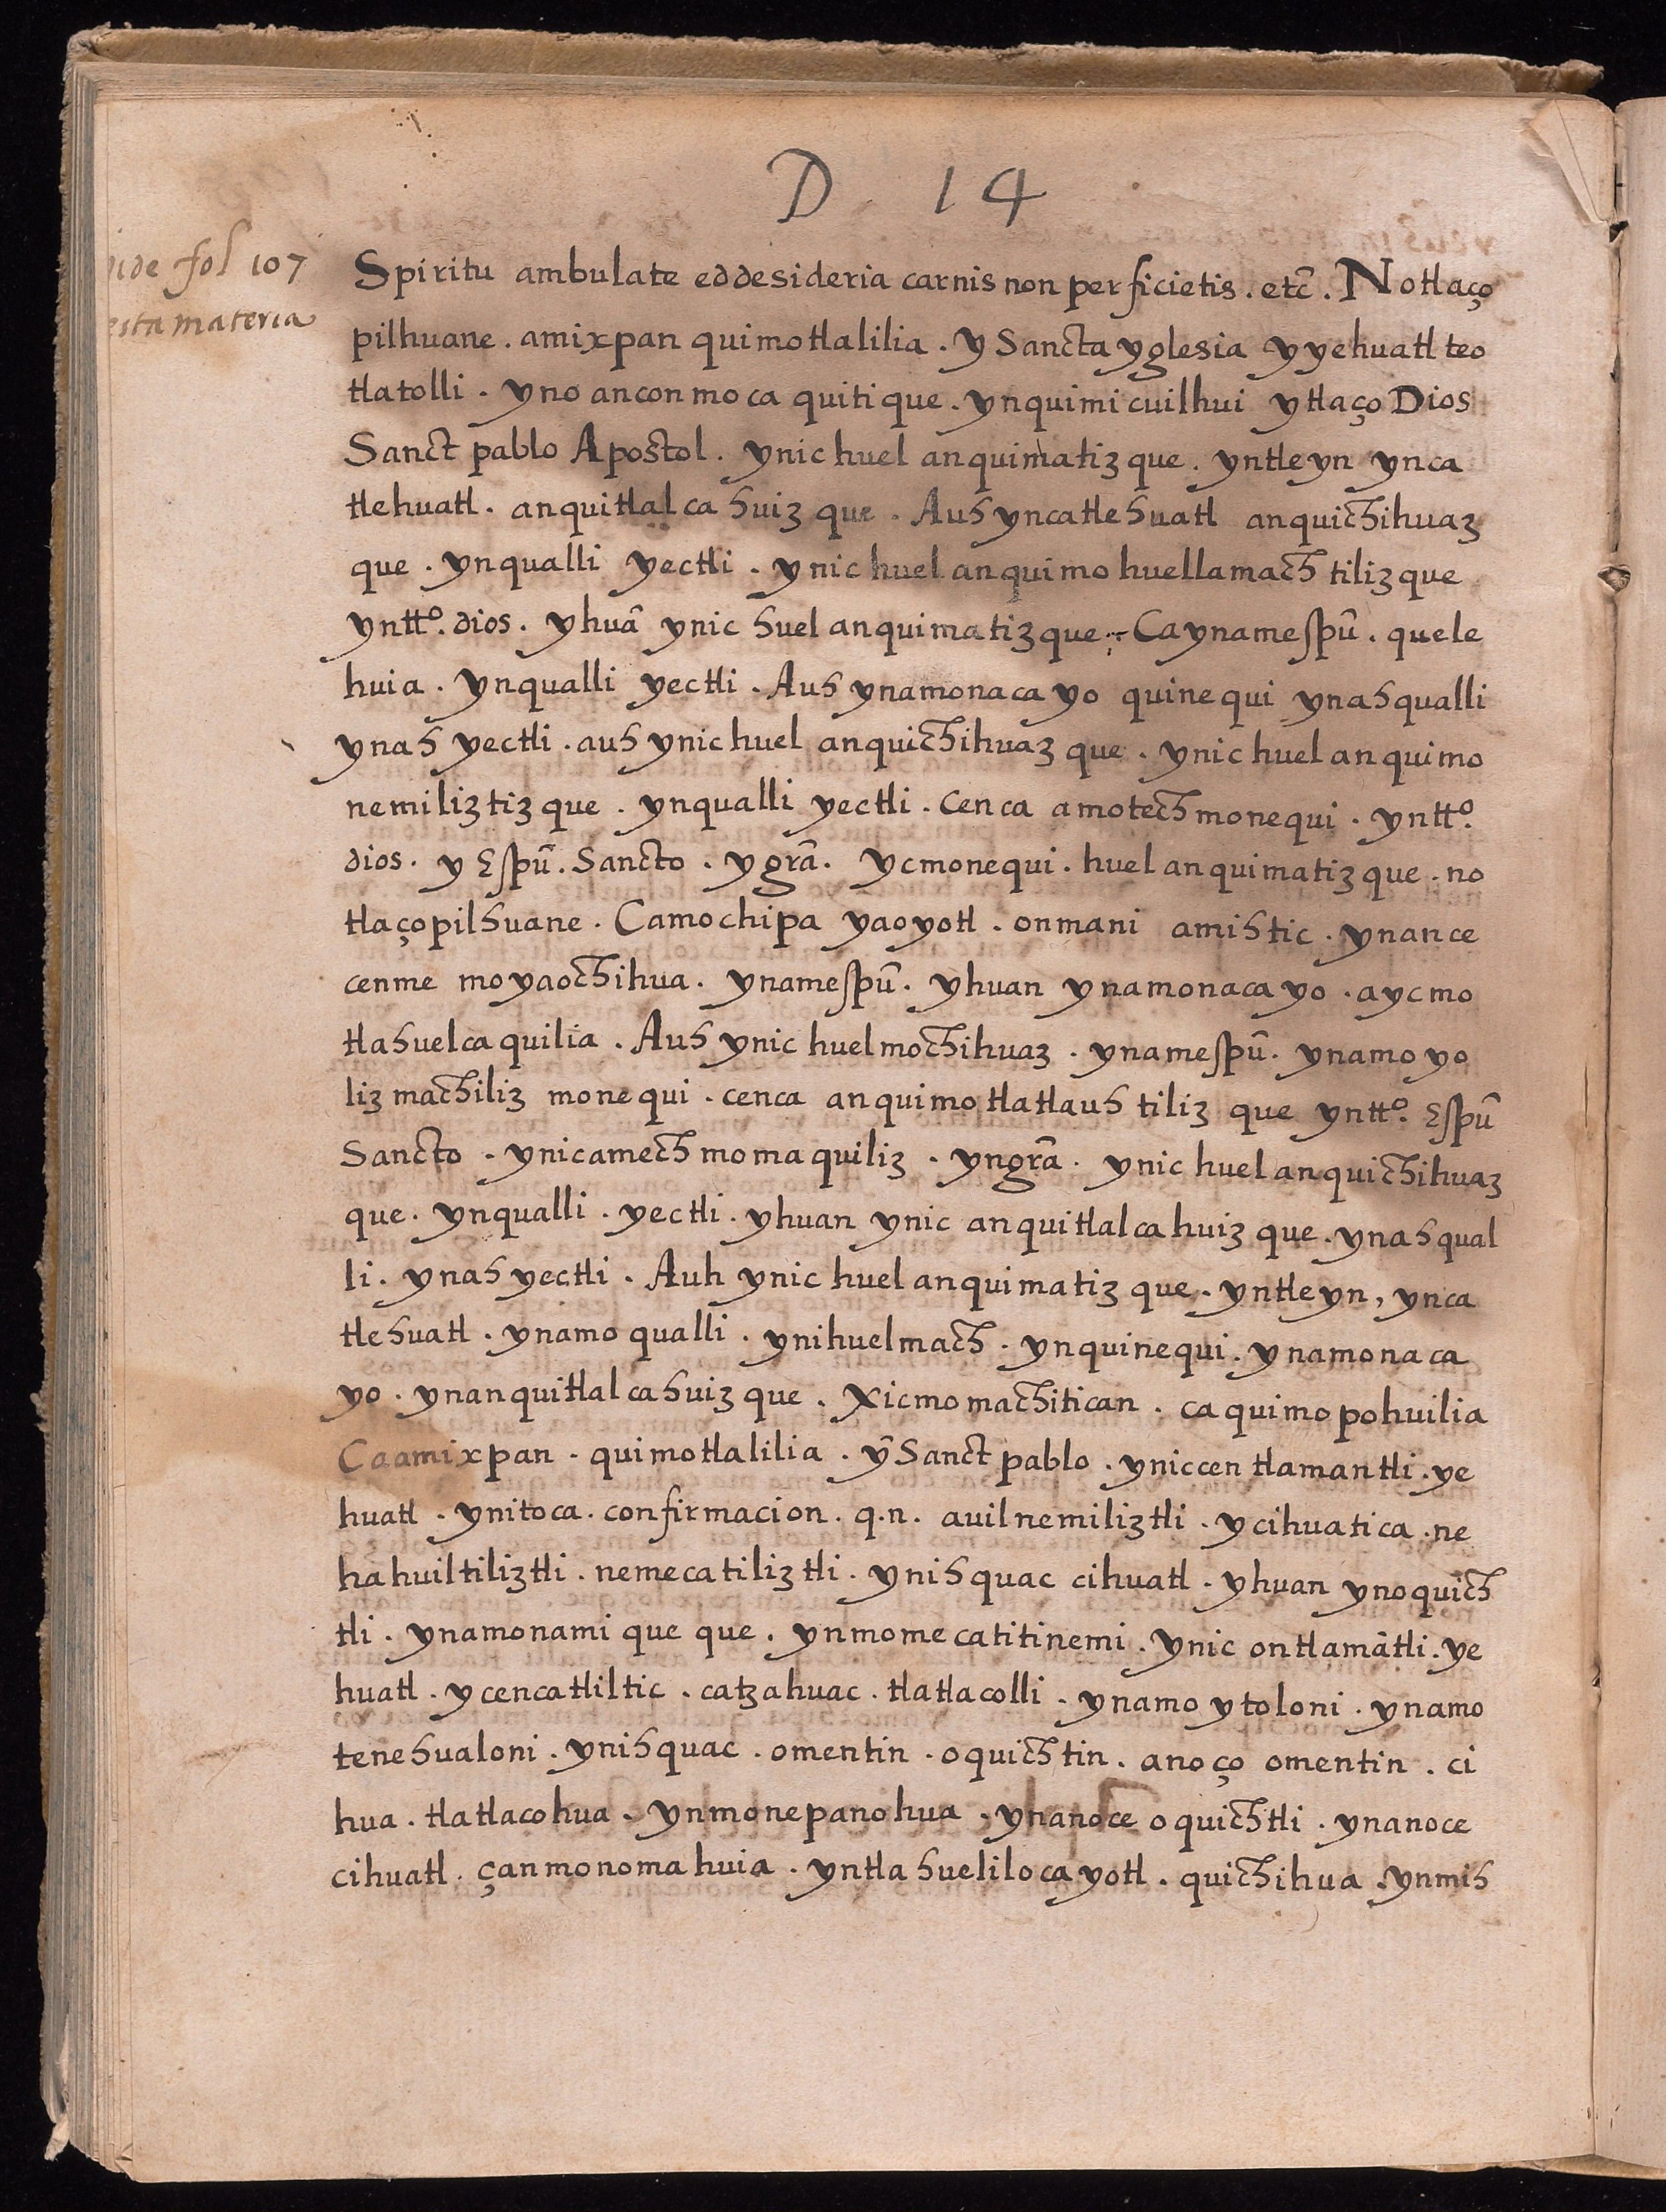 D 14
vide fol 107
esta materia
Spiritu ambulate eddesideria carnis non perficietis. etc̃. Notlaço
pilhuane. amixpan quimotlalilia. y Sancta yglesia y yehuatl teo
tlatolli. yno anconmocaquitique. ynquimicuilhui ytlaço Dios
Sanct pablo Apostol. ynic huel anquimatizque. yntleyn ynca
tlehuatl. anquitlalcahuizque. Auh yncatlehuatl anquichihuaz
que. ynqualli yectli. ynic huel anquimohuellamachtilizque
yntt.º dios. yhuã ynic huel anquimatizque. Ca ynamespũ. quele
huia. ynqualli yectli. Auh ynamonacayo quinequi ynahqualli
ynah yectli. auh ynic huel anquichihuazque. ynic huel anquimo
nemiliztizque. ynqualli yectli. cenca amotech monequi. yntt.º
dios. y Espũ. Sancto. y grã. yc monequi. huel anquimatizque. no
tlaçopilhuane. Ca mochipa yaoyotl. onmani amihtic. ynance
cenme moyaochihua. ynamespũ. yhuan ynamonacayo. aycmo
tlahuelcaquilia. Auh ynic huelmochihuaz. ynamespũ. ynamoyo
lizmachiliz monequi. cenca anquimotlatlauhtilizque yntt.º Espũ
Sancto. ynicamechmomaquiliz. yngrã. ynic huel anquichihuaz
que. ynqualli. yectli. yhuan ynic anquitlalcahuizque. ynahqual
li. ynah yectli. Auh ynic huel anquimatizque. yntleyn, ynca
tlehuatl. ynamo qualli. ynihuelmach. ynquinequi. ynamonaca
yo. ynanquitlalcahuizque. Xicmomachitican. ca quimopohuilia
Ca amixpan. quimotlalilia. ỹ Sanct pablo. ynic cen tlamantli. ye
huatl. ynitoca. confirmacion. q.n. auilnemiliztli. ycihuatica. ne
hahuiltiliztli. nemecatiliztli. ynihquac cihuatl. yhuan ynoquich
tli. ynamonamiqueque. ynmomecatitinemi. ynic ontlamãtli. ye
huatl. ycencatliltic. catzahuac. tlatlacolli. ynamo ytoloni. ynamo
tenehualoni. ynihquac. omentin. oquichtin. anoço omentin. ci
hua. tlatlacohua. ynmonepanohua. ynanoce oquichtli. ynanoce
cihuatl. çanmonomahuia. yntlahuelilocayotl. quichihua. ynmih